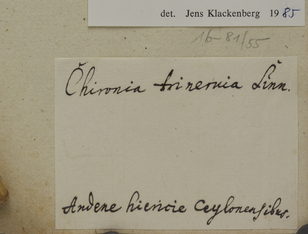 det. Jens Klackenberg 1985
16-81/55
Chironia trinervia Linn.
Andene hiencie Ceylonensibus.